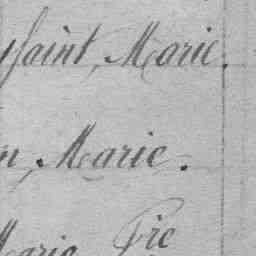 saint, Marie.
n, Marie.
Marie Pie